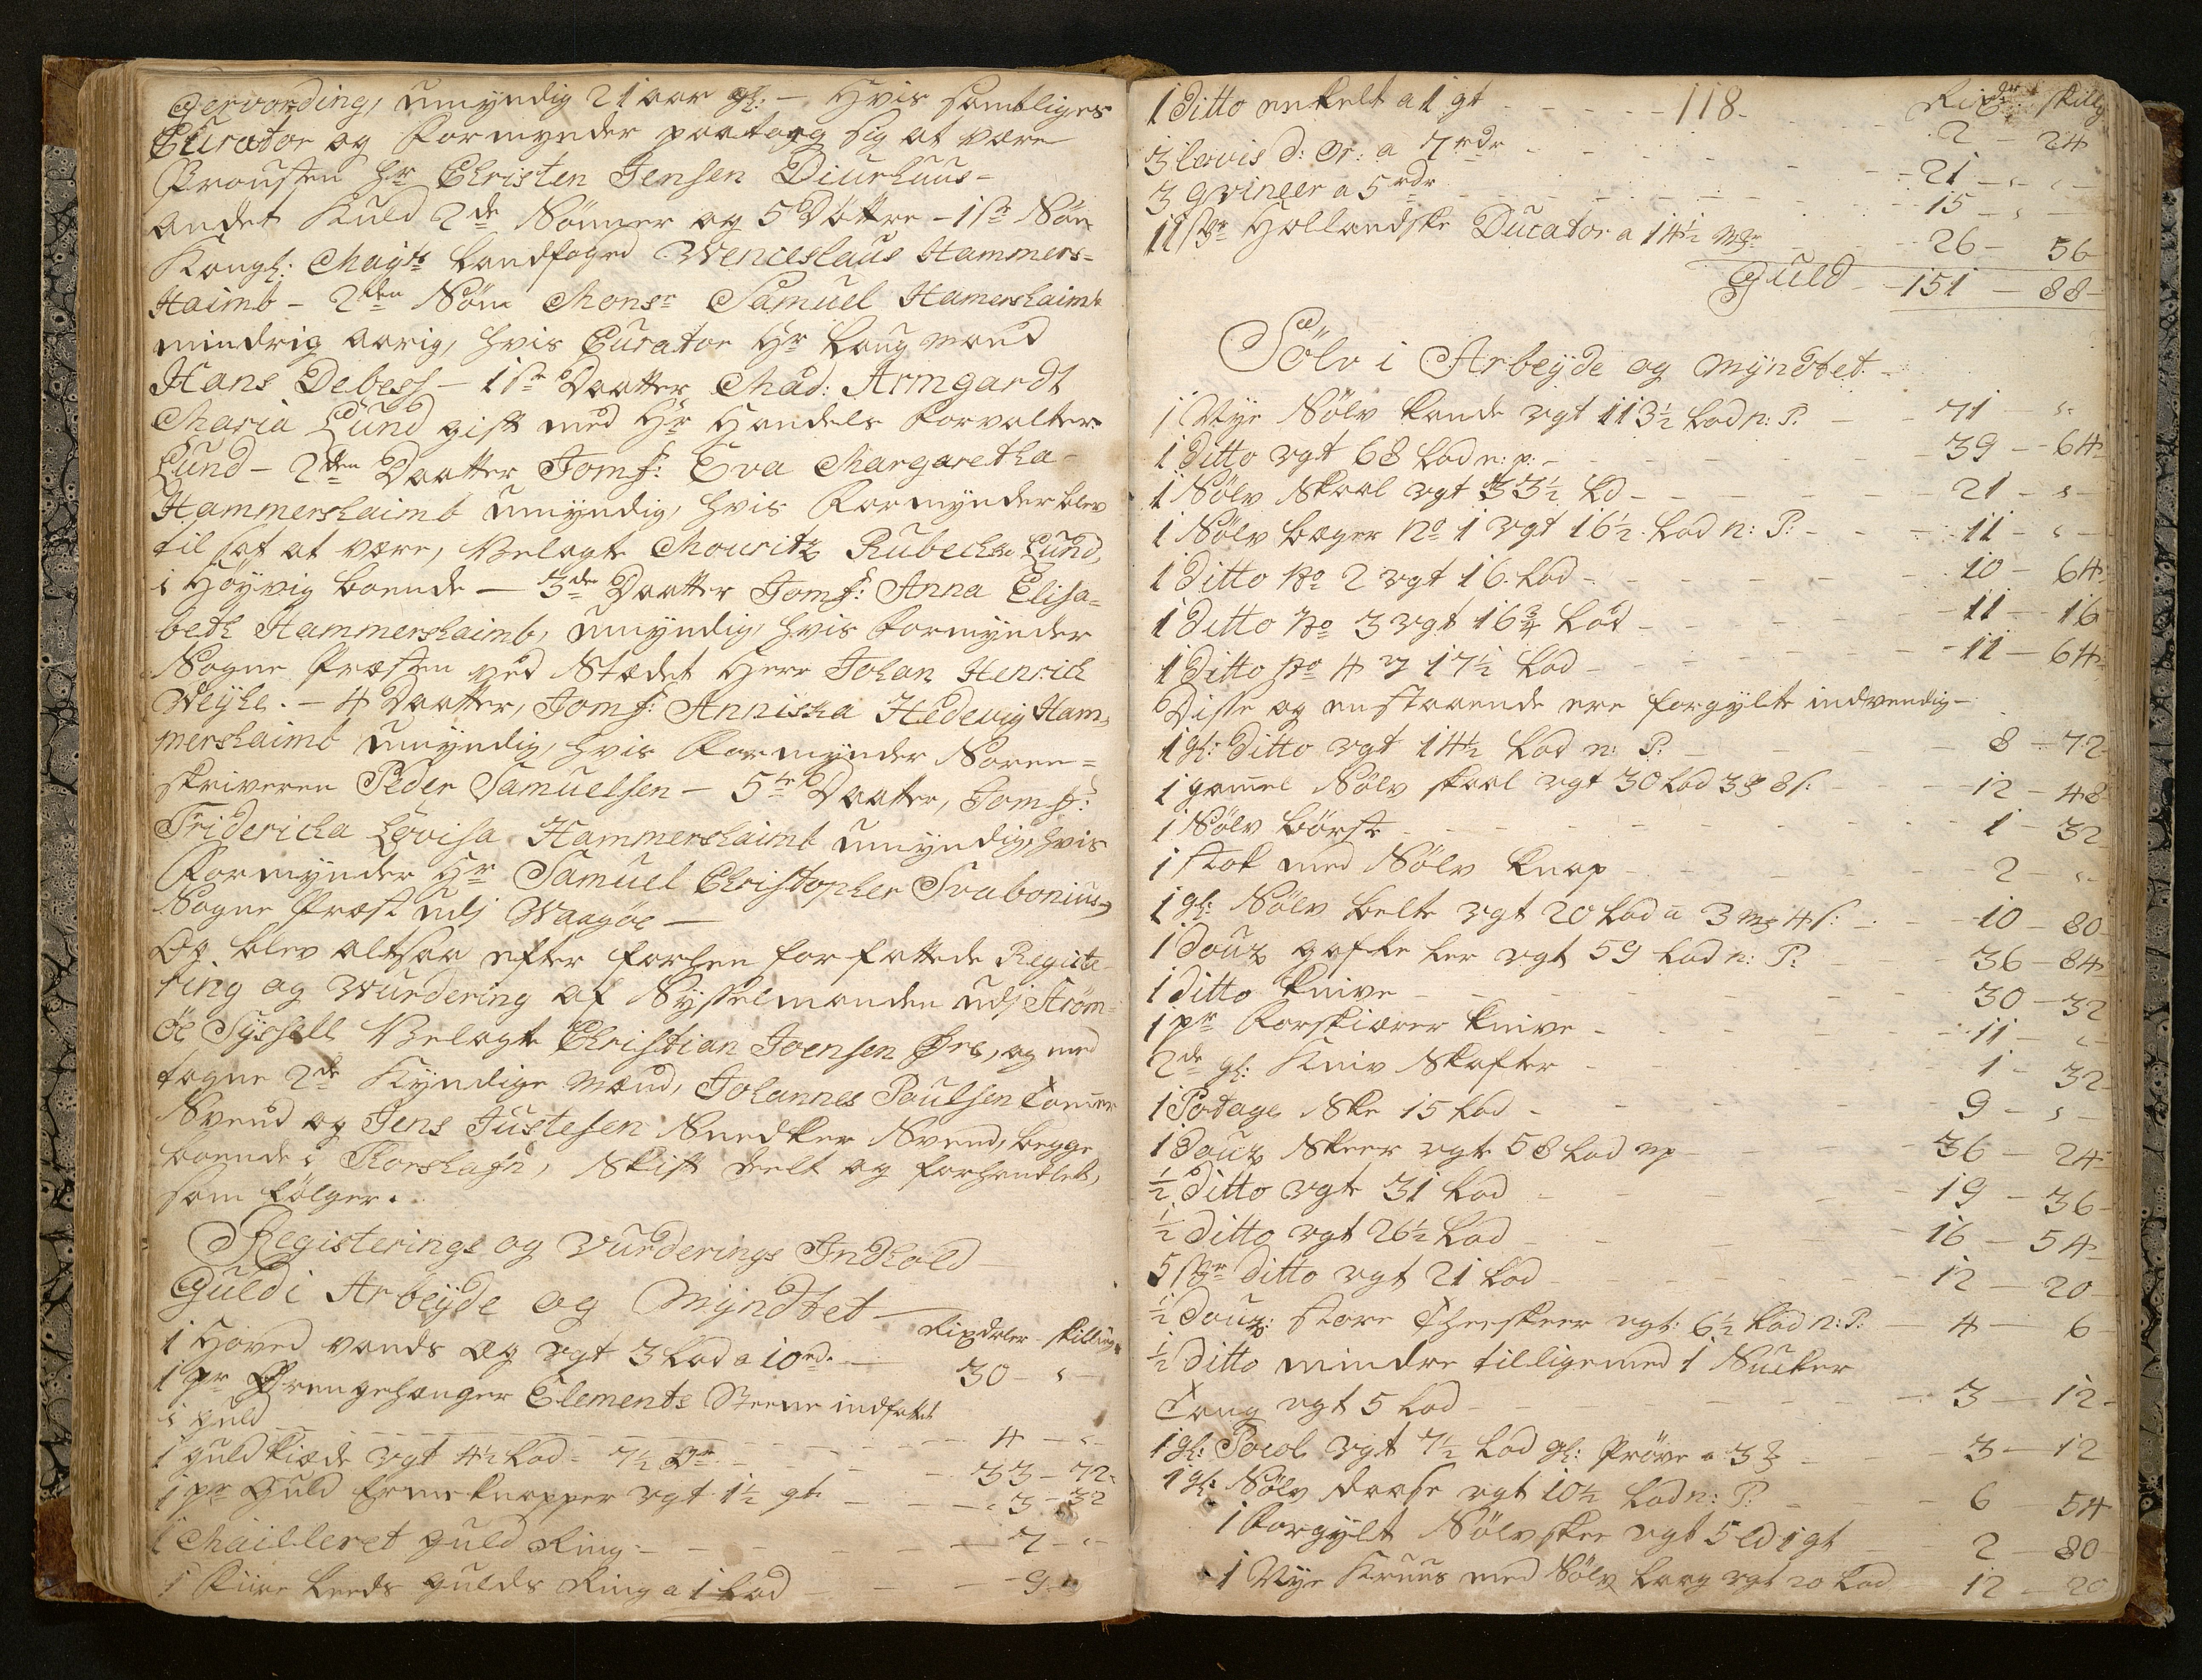 GerVording, umyndig 21 aar gl: – Hvis samtliges
Curator og Formynder paatoeg sig at være
Prousten Hr Christen Jensen Diurhuus –
andet Kuld 2de Sönner og 5 Döttre – 1ste Sön
Kongl: Mayts Landfoged Wenceslaus Hammers-
Haimb – 2den Sön Monsr Samuel Hamershaimb
mindrig aarig, hvis Curator Hr Laugmand
Hans Debess – 1ste Daatter Mad: Armgardt
Maria Lund gift med Hr Handels Forvalter
Lund – 2den Daatter Jomf: Eva Margaretha
Hammershaimb umyndig, hvis Formynder blev
til sat at være, Velagte Mouritz Rubechs Lund,
i Höyvig boende – 3de Daatter Jomf: Anna Elisa-
beth Hammershaimb, umyndig, hvis Formynder
Sogne Præsten ved Stædet Herr Johan Henrich
Weyhe. – 4 Daatter, Jomf: Anniska Hedevig Ham-
mershaimb umyndig, hvis Formynder Soren-
skriveren Peder Samuelsen – 5te Daatter, Jomf:
Fridericha Lovisa Hammershaimb umyndig, hvis
Formynder Hr Samuel Christopher Svabonius,
Sogne Præst udj Waagöe –
Og blev altsaa efter forhen forfattede Registe-
ring og Wurdering af Sysselmanden udj Ström-
öe Syssell Velagte Christian Joensen Öre, og med
tagne 2de Kyndige Mænd, Johannes Poulsen Tömmer
Svend og Jens Justesen Snedker Svend, begge
boende i Thorshafn, Skift deelt og forhandlet,
som fölger.
Registerings og Vurderings Indhold –
Guld i Arbeyde og Myndtet – Rixdaler – skilling
1 Hoved vands Æg vgt 3 Lod a 10rd. – 30 – "
1 pr Örengehænger Elements Steene indfattet
i guld – 4 – "
1 guld kiæde vgt 4½ Lod a 7½ dr – 33 – 72
1 pr Guld Ermeknapper vgt 1½ qt – 3 – 32
1 Mailleret guld Ring – 7 – "
1 Fiire Leeds gulds Ring a 1 Lod – 9 "
1 Ditto enkelt a 1 qt – 118. Rixdr skilly
2 – 24
3 lovis d: Or: a 7rdr – 21 – " –
3 Gvineer a 5rdr – 15 – "
11 stkr Hollandske Ducator a 14½ mk – 26 – 56
Guld – 151 – 88
Sölv i Arbeyde og Myndtet –
1 Nye Sölv Kande vgt 113½ Lod n: P. – 71 "
1 Ditto vgt 68 Lod n: p: – 39 – 64
1 Sölv Skaal vgt 33½ Ld – 21 – "
1 Sölv bæger No 1 vgt 16½ Lod n: P: – 11 – "
1 Ditto No 2 vgt 16 Lod – 10 – 64
1 Ditto No 3 vgt 16¾ Lod – 11 – 16
1 Ditto No 4 v 17½ Lod – 11 – 64
Disse og enstaaende ere forgylte indvendig –
1 gl: Ditto vgt 14½ Lod n: P: – 8 – 72
1 gammel Sölv skaal vgt 30 Lod 3 mk 8 s: – 12 – 48
1 Sölv Börste – 1 – 32
1 stok med Sölv knap – 2 – "
1 gl: Sölv Belte vgt 20 Lod a 3 mk 4 s: – 10 – 80
1 Douz gafler vgt 59 Lod n: P: – 36 – 84
1 Ditto Knive – 30 – 32
1 pr Forskiærer Knive – 11 – "
2de gl: Kniv Skafter – 1 – 32
1 Potage Ske 15 Lod – 9 – "
1 Douz Skeer vgt 58 Lod np – 36 – 24
½ Ditto vgt 31 Lod – 19 – 36
½ Ditto vgt 26½ Lod – 16 – 54
5 stkr Ditto vgt 21 Lod – 12 – 20
½ Douz: store Theeskeer vgt: 6½ Lod n: P: – 4 – 6
½ Ditto mindre tilligemed 1 Sucker
Tang vgt 5 Lod – 3 – 12
1 gl: Pocol vgt 7½ Lod gl: Pröve a 3 mk – 3 – 12
1 gl: Sölv Daase vgt 10½ Lod n: P: – 6 – 54
1 Forgylt Sölvskee vgt 5 ld 1 qt – 2 – 80
1 Nye Kruus med Sölv laag vgt 20 Lod 12 – 20